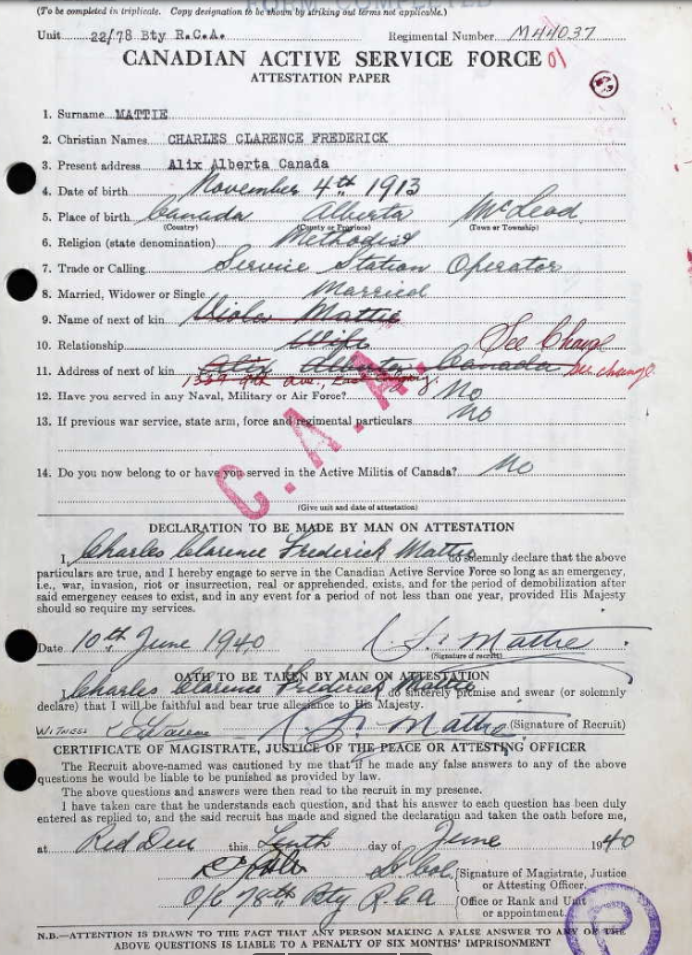 (To be completed in triplicate. Copy designation to be shown by striking out terms not applicable.)
Unit 22/78 Bty R.C.A. Regimental Number M44037
CANADIAN ACTIVE SERVICE FORCE 01
ATTESTATION PAPER
1. Surname MATTIE
2. Christian Names CHARLES CLARENCE FREDERICK
3. Present address Alix Alberta Canada
4. Date of birth November 4th 1913
5. Place of birth Canada Alberta McLeod
(Country) (County or Province) (Town or Township)
6. Religion (state denomination) Methodist
7. Trade or Calling Service Station Operator
8. Married, Widower or Single Married
9. Name of next of kin Viola Mattie
10. Relationship Wife See Change
11. Address of next of kin Alix Alberta Canada See change
Ave., East Calgary.
12. Have you served in any Naval, Military or Air Force? No
13. If previous war service, state arm, force and regimental particulars No
C.A.A.
14. Do you now belong to or have you served in the Active Militia of Canada? No
(Give unit and date of attestation)
DECLARATION TO BE MADE BY MAN ON ATTESTATION
I, Charles Clarence Frederick Mattie do solemnly declare that the above
particulars are true, and I hereby engage to serve in the Canadian Active Service Force so long as an emergency,
i.e., war, invasion, riot or insurrection, real or apprehended, exists, and for the period of demobilization after
said emergency ceases to exist, and in any event for a period of not less than one year, provided His Majesty
should so require my services.
Date 10th June 1940 Mattie
(Signature of recruit)
OATH TO BE TAKEN BY MAN ON ATTESTATION
I, Charles Clarence Frederick Mattie do sincerely promise and swear (or solemnly
declare) that I will be faithful and bear true allegiance to His Majesty.
WITNESS Mattie (Signature of Recruit)
CERTIFICATE OF MAGISTRATE, JUSTICE OF THE PEACE OR ATTESTING OFFICER
The Recruit above-named was cautioned by me that if he made any false answers to any of the above
questions he would be liable to be punished as provided by law.
The above questions and answers were then read to the recruit in my presence.
I have taken care that he understands each question, and that his answer to each question has been duly
entered as replied to, and the said recruit has made and signed the declaration and taken the oath before me,
at Red Deer this Tenth day of June 1940
Lt Col. Signature of Magistrate, Justice
or Attesting Officer.
O/C 78th Bty R.C.A Office or Rank and Unit
or appointment.
N.B.—ATTENTION IS DRAWN TO THE FACT THAT ANY PERSON MAKING A FALSE ANSWER TO ANY OF THE
ABOVE QUESTIONS IS LIABLE TO A PENALTY OF SIX MONTHS' IMPRISONMENT
P